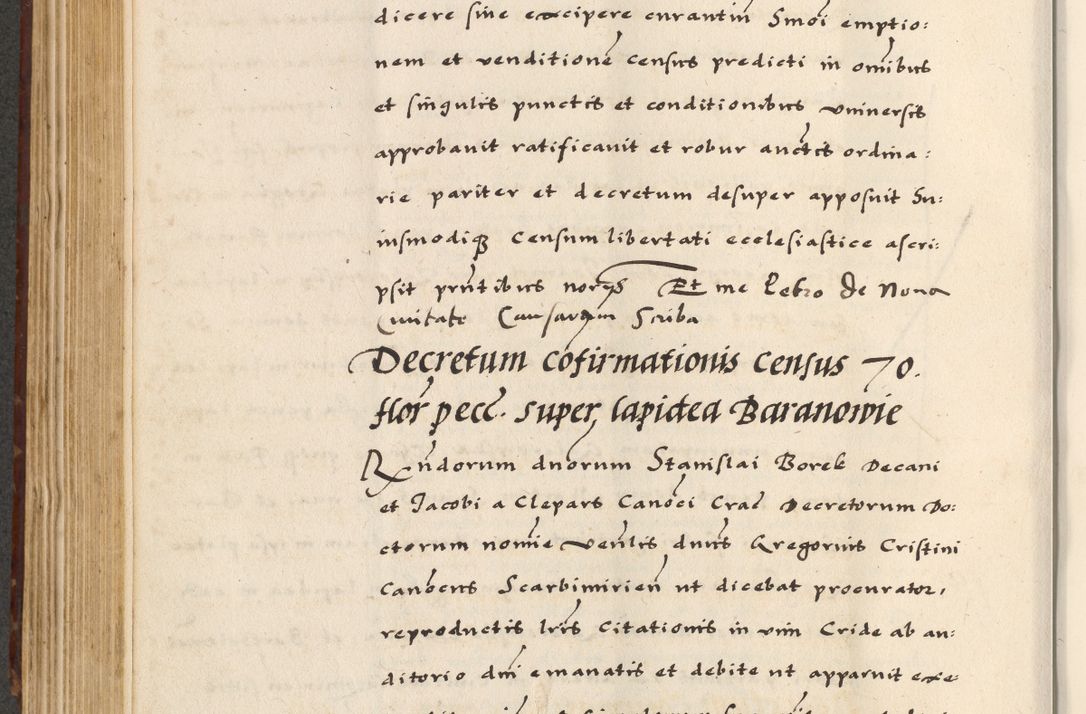 dicere sive excipere curantin Smoi emptio:
nem et venditione census predicti in omibus
et singulis punctis et conditionibus universis
approbavit ratificavit et robur auctcts ordina:
rie pariter et decretum desuper apposuit hu:
iusmodiqz censum libertati ecclesiastice ascri:
psit pntibus Et me Petro de Nova
Civitate Causarum Scriba
Decretum cofirmationis census 70.
flor pecc. super lapidea Baranowie
Rndorum dnorum Stanislai Borek Decani
et Jacobi a Clepars Canoci Crac Decretorum Do:
ctorum nomie venlis dnus Gregorius Cristini
Canocus Scarbimirien ut dicebat procurator,
reproductis lris citationis in vim Cride ab au:
ditorio dni emanatis et debite ut apparuit exe: